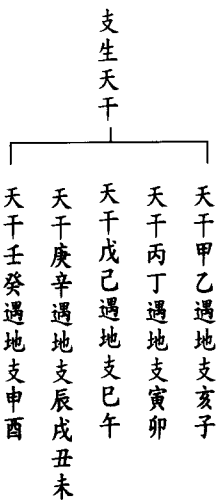 支生天干
天干甲乙遇地支亥子
天干丙丁遇地支寅卯
天干戊己遇地支巳午
天干庚辛遇地支辰戌丑未
天干壬癸遇地支申酉